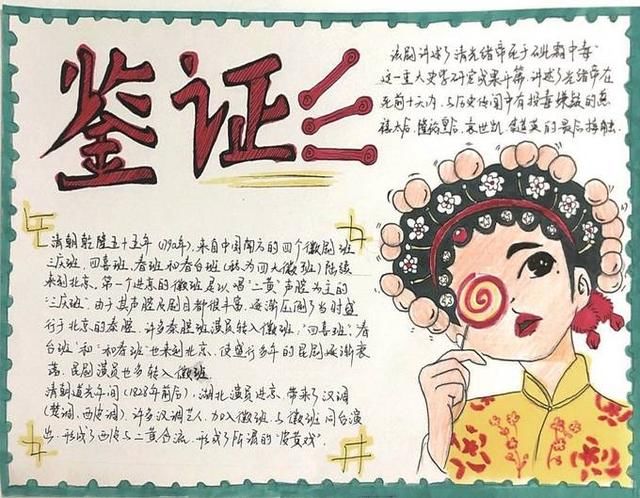 鉴证
该剧讲述了清光绪帝死于砒霜中毒
这一重大史学研究成果计篇，讲述了光绪帝在
死前十天内，与历史传闻中有投毒嫌疑的慈
禧太后、隆裕皇后、袁世凯、崔道英的最后接触.
清朝乾隆五十五年(1790年)，来自中国南方的四个徽剧班
三庆班、四喜班、春班和春台班(称为四大徽班)陆续
来到北京，第一个进京的徽班是以唱“二黄”声腔为主的
“三庆班.由于其声腔及剧目都很丰富，逐渐压倒了当时盛
行于北京的秦腔.许多秦腔班演员转入徽班，“四喜班”“春
台班”和“和春班”也来到北京，使盛行多年的昆剧逐渐衰
落，昆剧演员也多转入徽班
清朝道光年间(1828年前后)，湖北演员进京，带来了汉调
(楚调、西皮调).许多汉调艺人，加入徽班，与徽班同台演
出，形成了西皮与二黄合流，形成了所谓的“皮黄戏”.